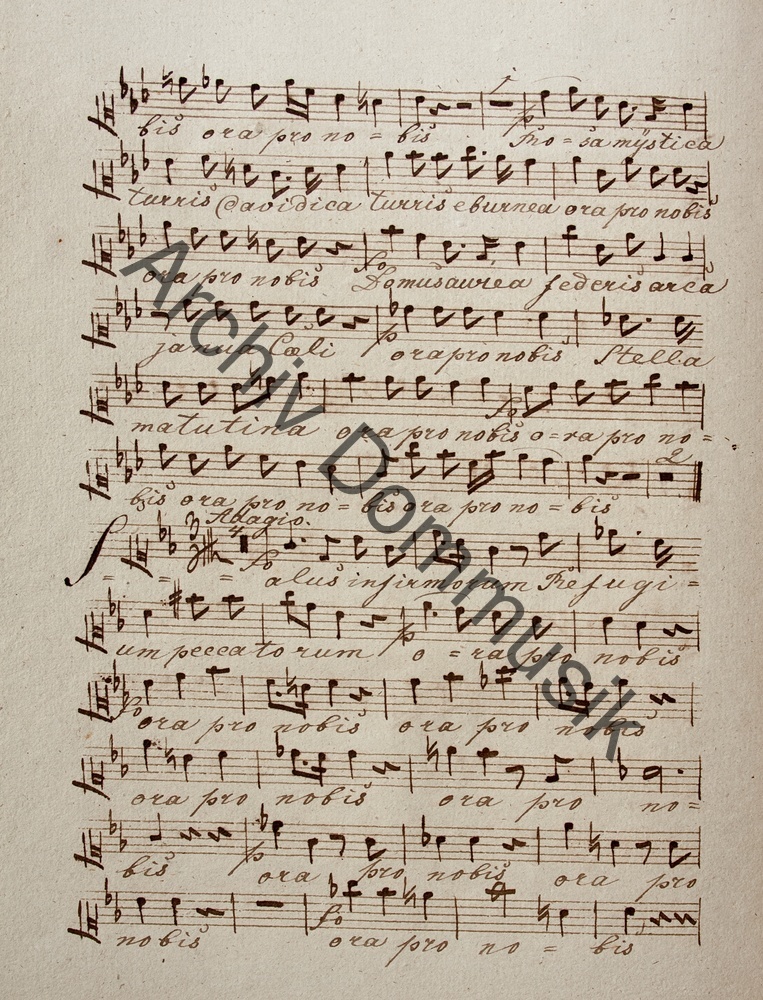 bis ora pro no = bis Fro = sa mÿstica
turris Davidica turris eburnea ora pro nobis
ora pro nobis fo Domus aurea federis arca
janua Cœli p ora pro nobis Stella
matutina ora pro nobis fo o = ra pro no =
2
bis ora pro no = bis ora pro no = bis
Adagio.
3/4
S = = = fo alus infirmorum Refugi =
um peccatorum p o = ra pro nobis
fo ora pro nobis ora pro nobis
ora pro nobis ora pro no =
bis p ora pro nobis ora pro
nobis fo ora pro no = bis
Archiv Dommusik